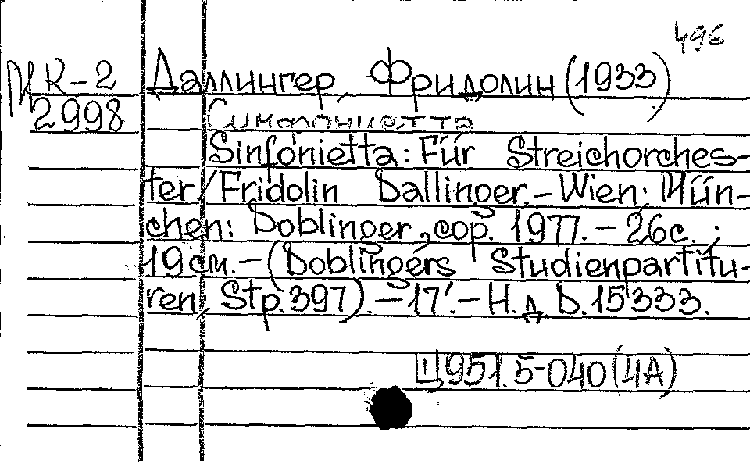 496
К-2 Даллингер, Фридолин (1933)
2998 Симфониетта
Sinfonietta: Für Streichorches-
ter/Fridolin Dallinger.-Wien; Mün-
chen: Doblinger, cop. 1977.-26с.;
19см.-(Doblingers Studienpartitu-
ren; Stp.397).-17'.-Н.д. D.15333.
Ц951.5-040(4А)